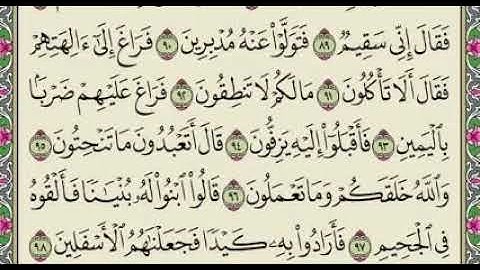 فَقَالَ إِنِّي سَقِيمٌ ٨٩ فَتَوَلَّوْا۟ عَنْهُ مُدْبِرِينَ ٩٠ فَرَاغَ إِلَىٰٓ ءَالِهَتِهِمْ
فَقَالَ أَلَا تَأْكُلُونَ ٩١ مَا لَكُمْ لَا تَنطِقُونَ ٩٢ فَرَاغَ عَلَيْهِمْ ضَرْبًۢا
بِٱلْيَمِينِ ٩٣ فَأَقْبَلُوٓا۟ إِلَيْهِ يَزِفُّونَ ٩٤ قَالَ أَتَعْبُدُونَ مَا تَنْحِتُونَ ٩٥
وَٱللَّهُ خَلَقَكُمْ وَمَا تَعْمَلُونَ ٩٦ قَالُوا۟ ٱبْنُوا۟ لَهُۥ بُنْيَـٰنًا فَأَلْقُوهُ
فِى ٱلْجَحِيمِ ٩٧ فَأَرَادُوا۟ بِهِۦ كَيْدًا فَجَعَلْنَـٰهُمُ ٱلْأَسْفَلِينَ ٩٨